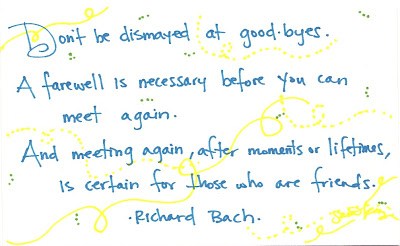 Don't be dismayed at good-byes.
A farewell is necessary before you can
meet again.
And meeting again, after moments or lifetimes,
is certain for those who are friends.
·Richard Bach.